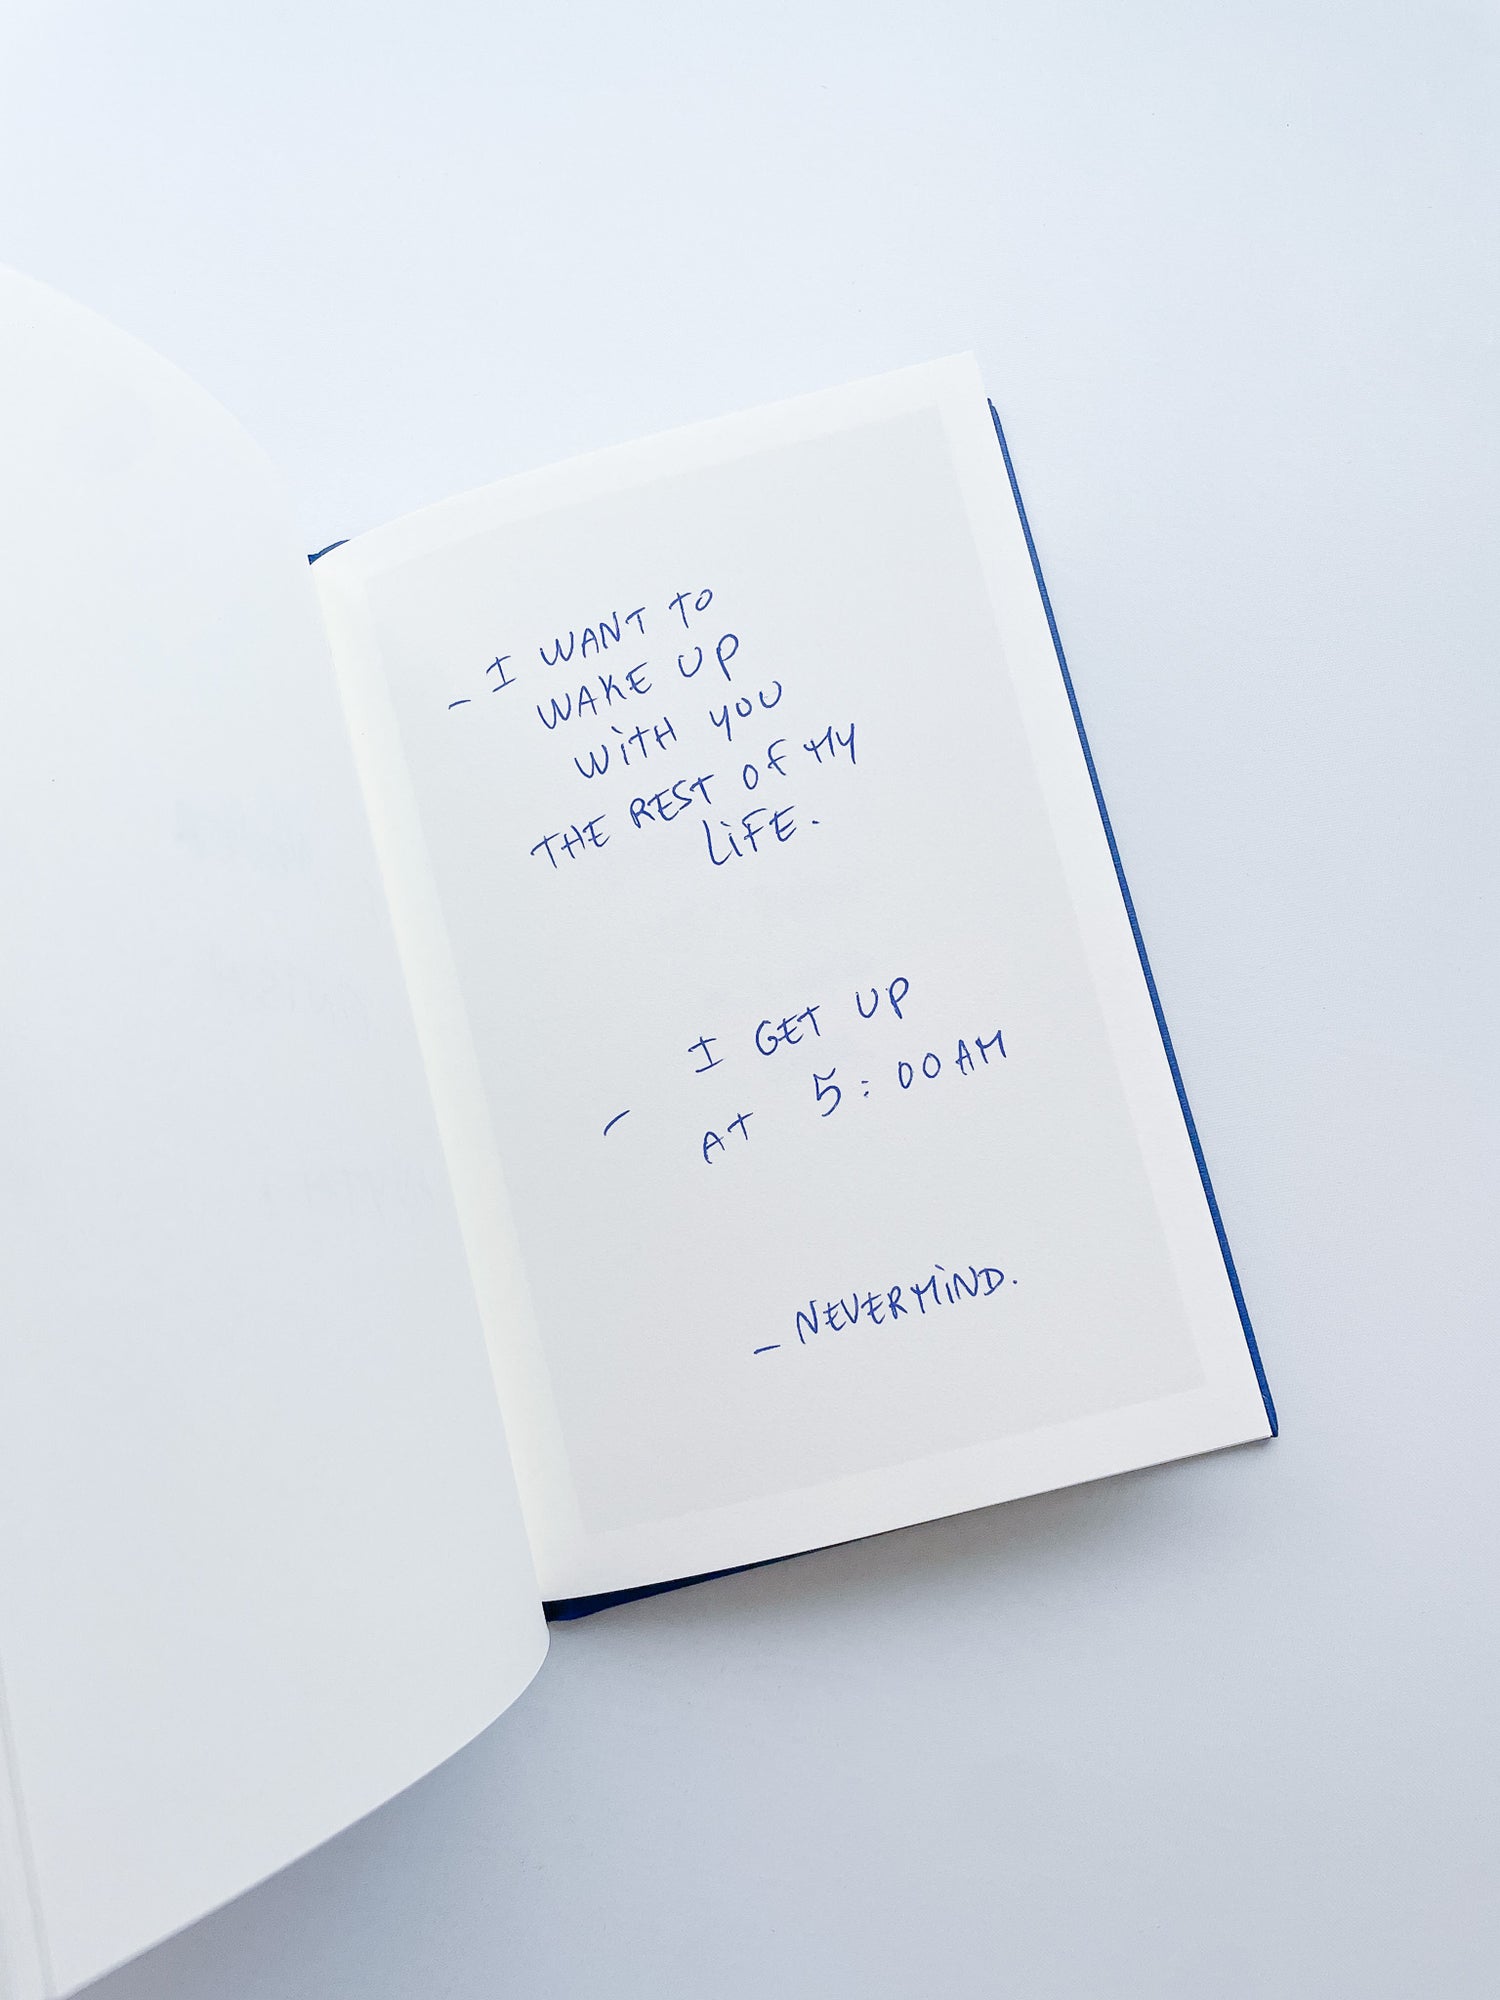 - I WANT TO
WAKE UP
WiTH YOU
THE REST OF MY
LiFE.
I GET UP
- AT 5:00 AM
- NEVERMiND.